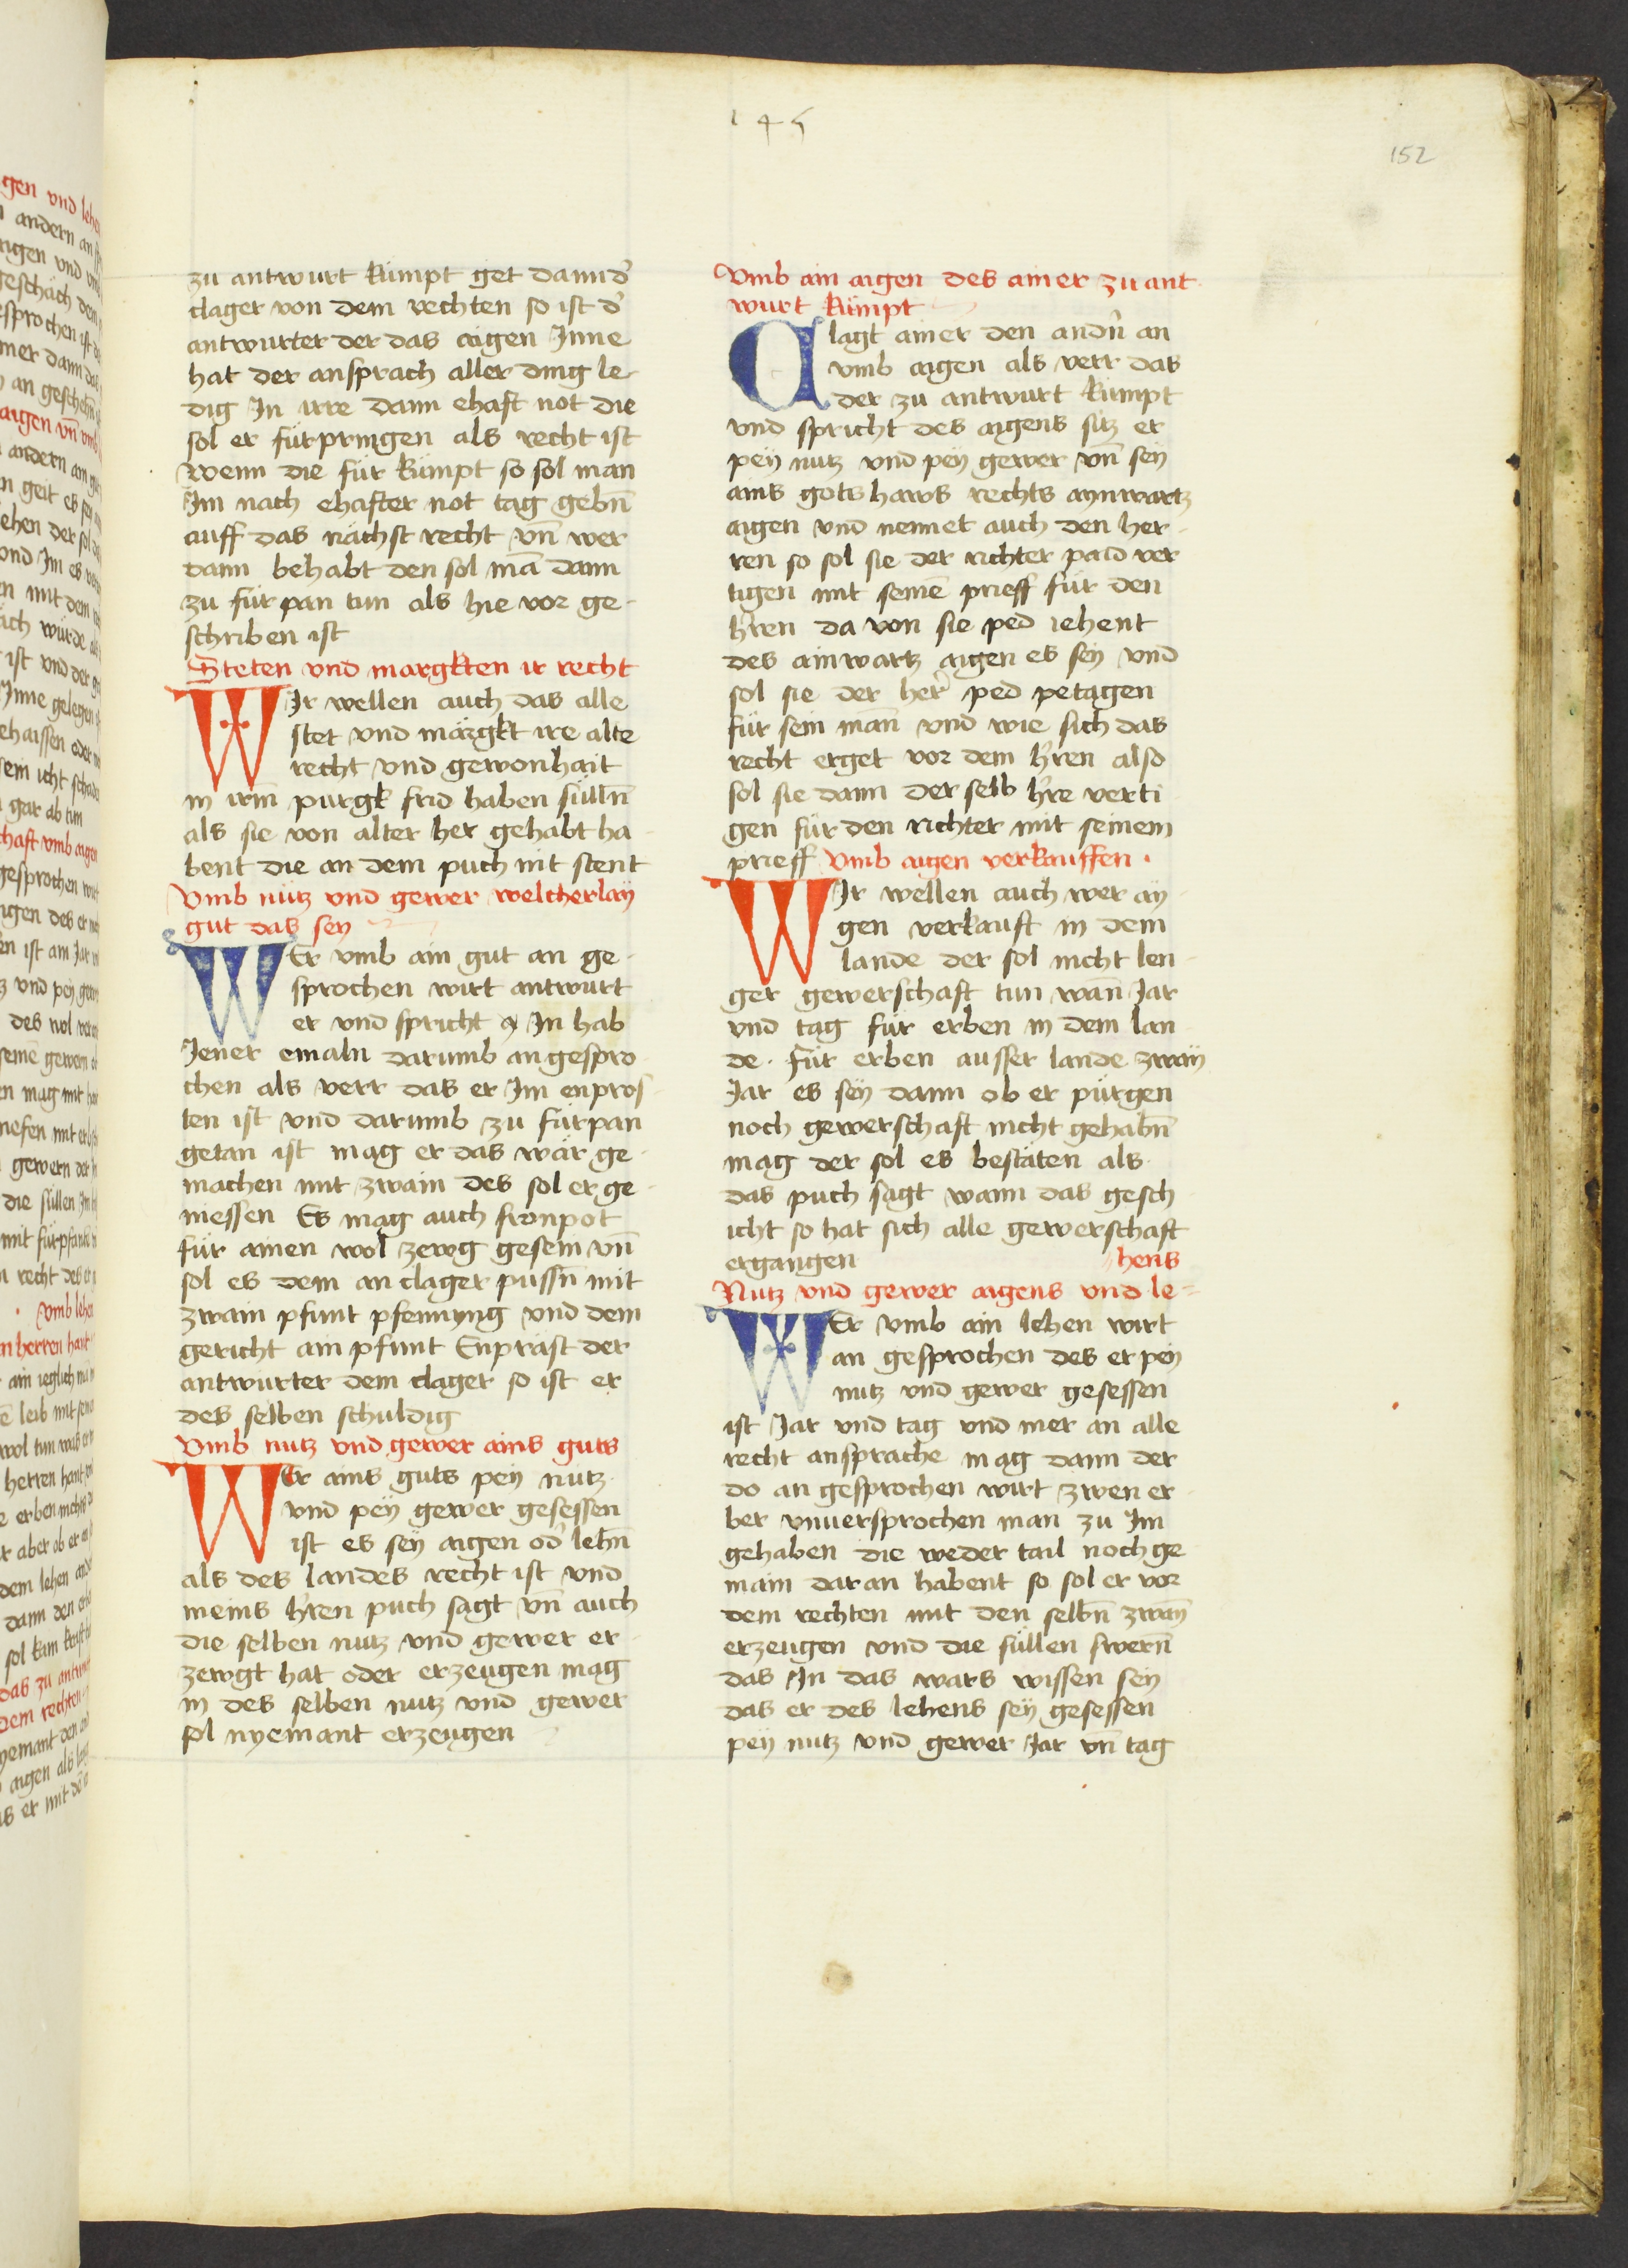 145
152
zu antwurt kümpt get dann d̕
clager von dem rechten so ist d̕
antwurter der das aigen Inne
hat der ansprach aller ding le-
dig In irre dann ehaft not die
sol er fürpringen als recht ist
wenn die für kümpt so sol man
Im nach ehafter not tag gebn̄
auff das nächst recht vn̄ wer
dann behabt den sol mā dann
zu fürpan tun als hie vor ge-
schriben ist
Steten vnd margkten ir recht
WIr wellen auch das alle
stet vnd märgkt ire alte
recht vnd gewonhait
in irm̄ purgk frid haben sülln̄
als sie von alter her gehabt ha-
bent die an dem puch nit stent
Vmb nutz vnd gewer welcherlaÿ
gut das seÿ
WEr vmb ain gut an ge-
sprochen wirt antwurt
er vnd spricht In hab
Iener emaln darumb angespro-
chen als verr das er Im enpros-
ten ist vnd darumb zu fürpan
getan ist mag er das wär ge-
machen mit zwain des sol er ge-
niessen Es mag auch fronpot
für ainen wol zewg gesein vn̄
sol es dem an clager pussn̄ mit
zwain pfunt pfenning vnd dem
gericht ain pfunt Enprast der
antwurter dem clager so ist er
des selben schuldig
Vmb nutz vnd gewer ains guts
WEr ains guts peÿ nutz
vnd peÿ gewer gesessen
ist es seÿ aigen od̕ lehn̄
als des landes recht ist vnd
meins h̕ren puch sagt vn̄ auch
die selben nutz vnd gewer er-
zewgt hat oder erzeugen mag
in des selben nutz vnd gewer
sol nyemant erzeugen
Vmb ain aigen des ainer zu ant-
wurt kümpt
Clagt ainer den andn̄ an
vmb aigen als verr das
der zu antwurt kümpt
vnd spricht des aigens sitz er
peÿ nutz vnd peÿ gewer vn̄ seÿ
ains gotshaws rechts aynwartz
aigen vnd nennet auch den her-
ren so sol sie der richter paid ver
tigen mit seinē prieff für den
h̕ren da von sie ped iehent
des ainwartz aigen es seÿ vnd
sol sie der her̕ ped petagen
für sein man̄ vnd wie sich das
recht erget vor dem h̕ren also
sol sie dann der selb h̕re verti
gen für den richter mit seinem
prieff Vmb aigen verkauffen.
WIr wellen auch wer aÿ-
gen verkauft in dem
lande der sol nicht len-
ger gewerschaft tun wan̄ Iar
vnd tag für erben in dem lan-
de. für erben ausser lande zwaÿ
Iar es seÿ dann ob er pürgen
noch gewerschaft nicht gehabn̄
mag der sol es bestäten als
das puch sagt wann das gesch-
icht so hat sich alle gewerschaft
ergangen
hens
Nutz vnd gewer aigens vnd le=
WEr vmb ain lehen wirt
an gesprochen des er peÿ
nutz vnd gewer gesessen
ist Iar vnd tag vnd mer an alle
recht ansprache mag dann der
do an gesprochen wirt zwen er-
ber vnuersprochen man zu Im
gehaben die weder tail noch ge
main daran habent so sol er vor
dem rechten mit den selbn̄ zwaÿ
erzeugen vnd die süllen swern̄
das In das wars wissen seÿ
das er des lehens seÿ gesessen
peÿ nutz vnd gewer Iar vn̄ tag